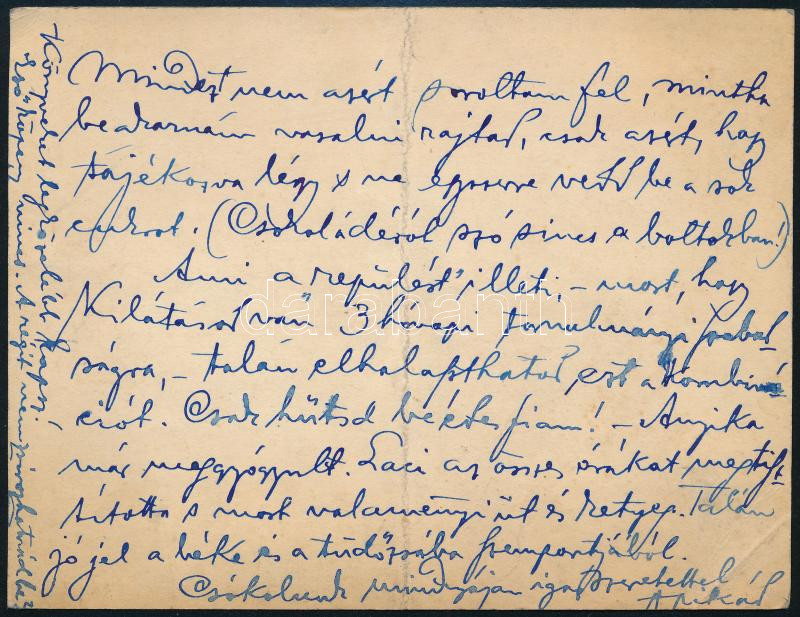 Mindezt nem azért soroltam fel, mintha
be akarnám vasalni rajtad, csak azért, hogy
tájékozva légy s ne egyszerre vedd be a sok
cukrot. (Csokoládéról szó sincs a boltokban!)
Ami a "repülést" illeti, – most, hogy
Kilátásod van 3 hónapi tanulmányi szabad-
ságra, – talán elhalaszthatod ezt a kombiná-
ciót. Csak hűtsd be édes fiam! – Anyika
már meggyógyult. Laci az összes órákat
s most valamennyi üt és ketyeg. Talán
jó jel a béke és a szempontjából.
Csókolunk mindnyájan igaz szeretettel
Apikád
Könyvelet legközelebb kapsz.
Esőköpeny nincs. A régit nem
darabanth